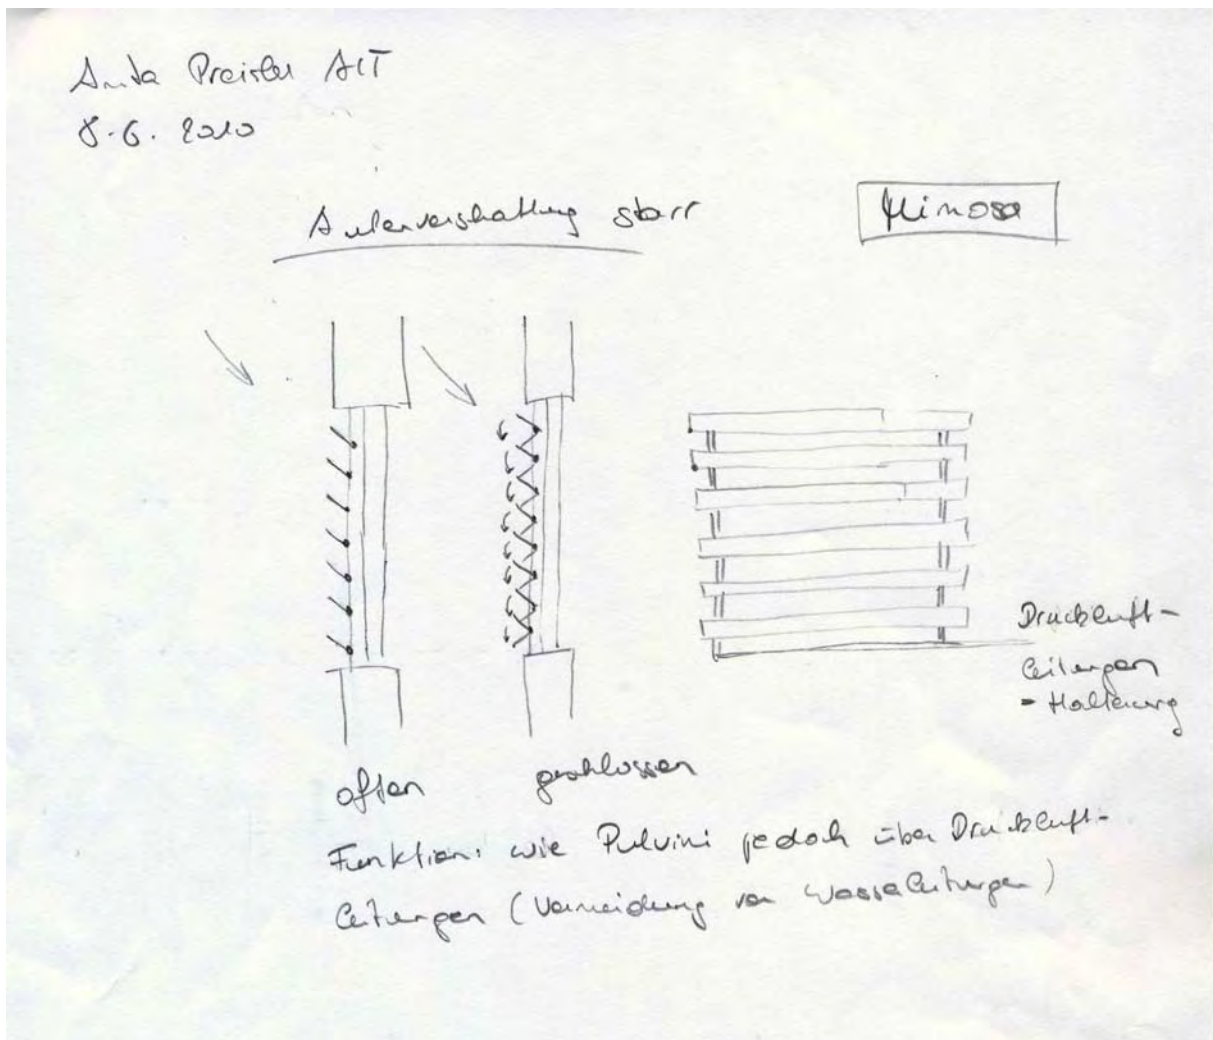 Anita Preisler AIT
8.6. 2010
Außenverschattung starr
Mimosa
Druckluft-
leitungen
= Halterung
offen
geschlossen
Funktion: wie Pulvini jedoch über Druckluft-
leitungen (Vermeidung von Wasserleitungen)